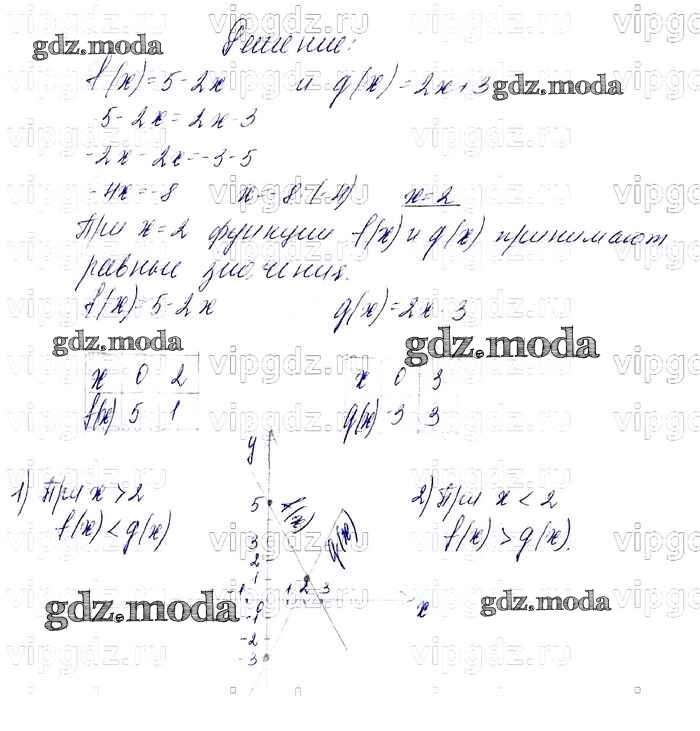 Решение:
f(x)=5-2x и g(x)=2x+3
5-2x=2x-3
-2x-2x=-3-5
-4x=-8 x=-8:(-4) x=2
При x=2 функции f(x) и g(x) принимают
равные значения.
f(x)=5-2x g(x)=2x-3
x 0 2 x 0 3
f(x) 5 1 g(x) -3 3
y
1) При x>2 2) При x<2
f(x)<g(x) f(x)>g(x).
5
f(x)
g(x)
3
2
1
-1 0 1 2 3 x
-1
-2
-3
gdz.moda
vipgdz.ru